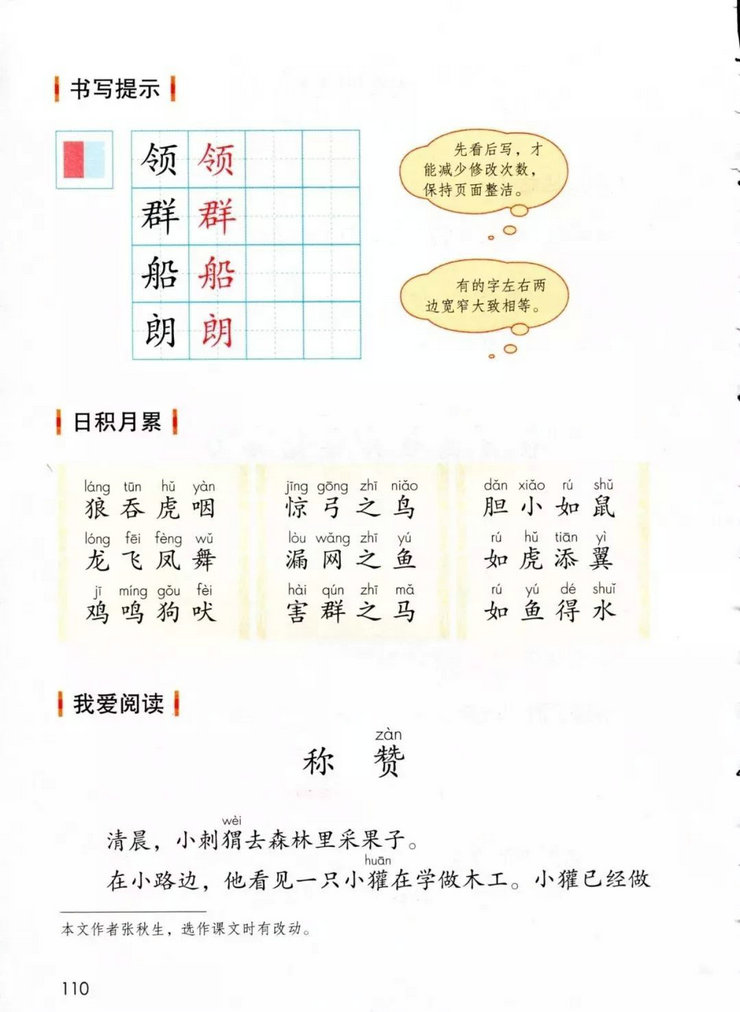 书写提示
领 领
群 群
船 船
朗 朗
先看后写，才
能减少修改次数，
保持页面整洁。
有的字左右两
边宽窄大致相等。
日积月累
láng tūn hǔ yàn
狼吞虎咽
lóng fēi fèng wǔ
龙飞凤舞
jī míng gǒu fèi
鸡鸣狗吠
jīng gōng zhī niǎo
惊弓之鸟
lòu wǎng zhī yú
漏网之鱼
hài qún zhī mǎ
害群之马
dǎn xiǎo rú shǔ
胆小如鼠
rú hǔ tiān yì
如虎添翼
rú yú dé shuǐ
如鱼得水
我爱阅读
zàn
称 赞
wèi
清晨，小刺猬去森林里采果子。
huān
在小路边，他看见一只小獾在学做木工。小獾已经做
本文作者张秋生，选作课文时有改动。
110